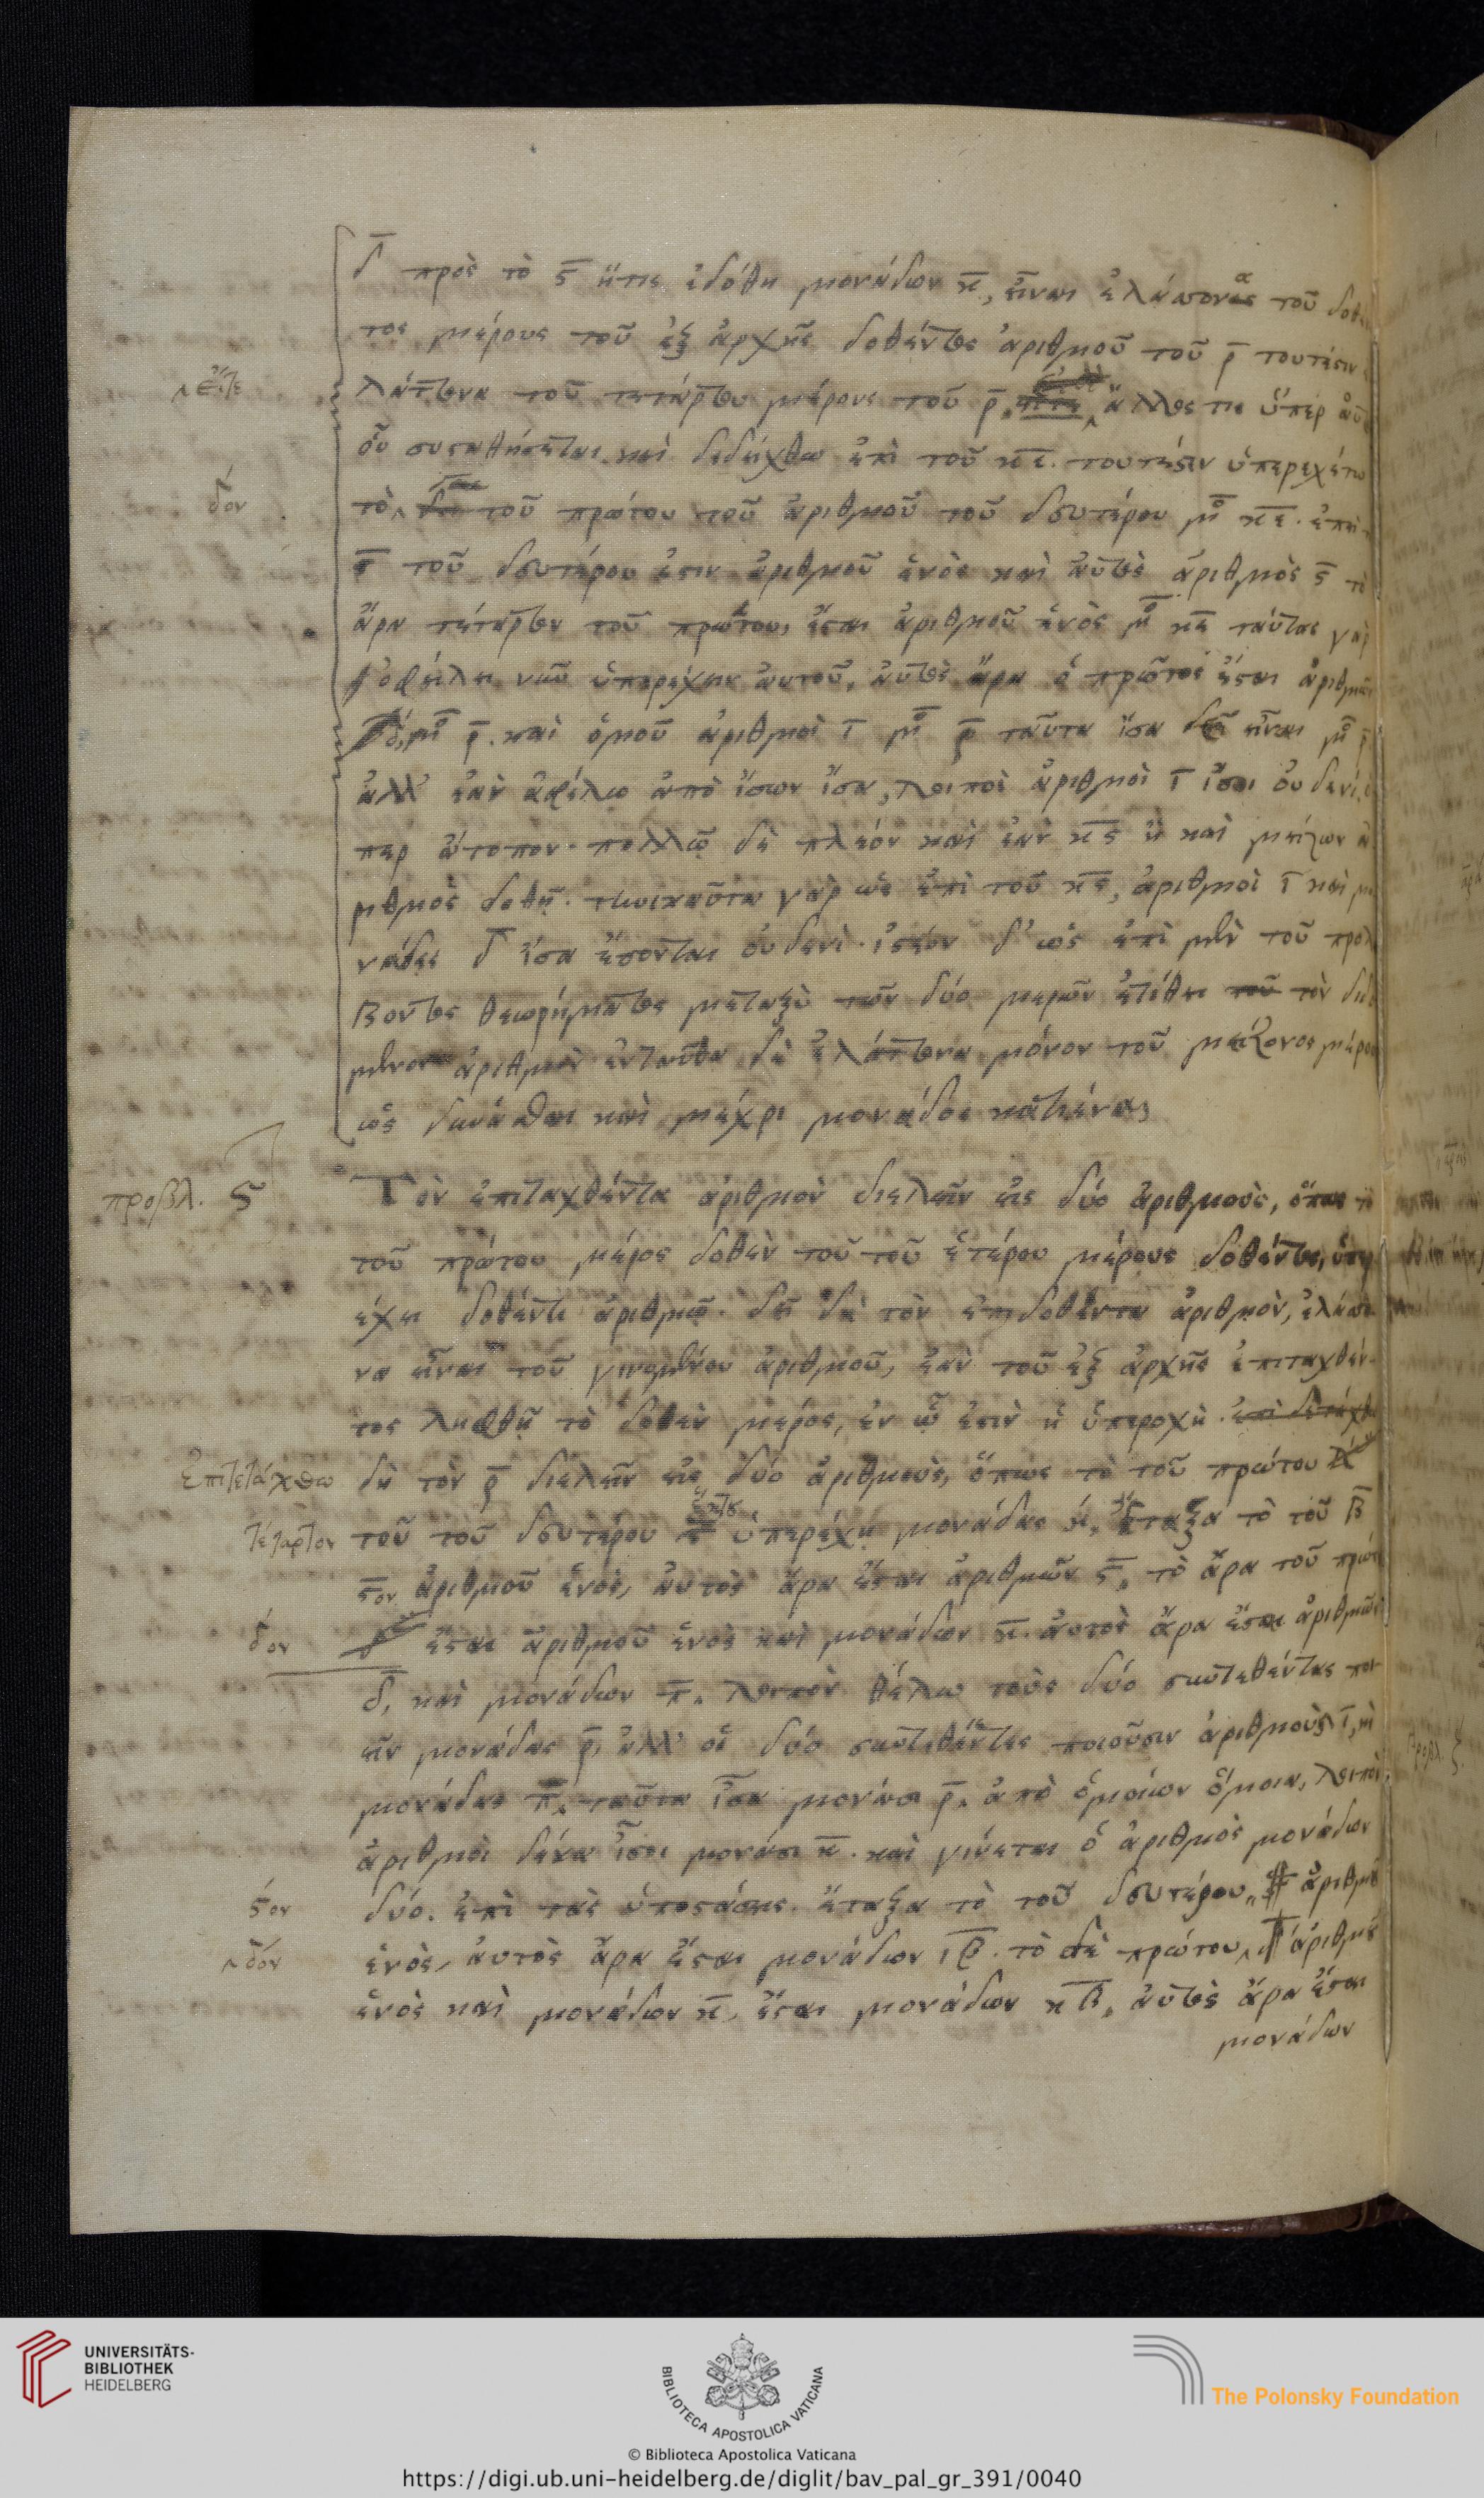 δ̅ πρὸς τὸ ς̅ ἥτις ἐδόθη μονάδων κ̅, εἶναι ἐλάττονα τοῦ
τος μέρους τοῦ ἐξ ἀρχῆς δοθέντος ἀριθμοῦ τοῦ ρ̅ τουτέστιν
λάττονα τοῦ τετάρτου μέρους τοῦ ρ̅, ἄλλος τις ὑπὲρ
οὐ συσταθήσεται καὶ δεδείχθω ἐπὶ τοῦ κε̅. τουτέστιν ὑπερεχέτω
δον
τὸ τοῦ πρώτου τοῦ ἀριθμοῦ τοῦ δευτέρου μ̊ κε̅.
ς̅ τοῦ δευτέρου ἐστιν ἀριθμοῦ ἑνὸς καὶ αὐτὸς ἀριθμὸς ς̅ τὸ
ἄρα τέταρτον τοῦ πρώτου, ἔσται ἀριθμοῦ ἑνὸς μ̊ κε̅ ταύτας γὰρ
ὀφείλει ὑπερέχειν αὐτοῦ, αὐτὸς ἄρα ὁ πρῶτος ἔσται
δ, μ̊ ρ̅. καὶ ὁμοῦ ἀριθμοὶ ι̅ μ̊ ρ̅ ταῦτα ἴσα εἶναι μ̊ ρ̅
ἀλλ' ἐὰν ἀφέλω ἀπὸ ἴσων ἴσα, λοιποὶ ἀριθμοὶ ι̅ ἴσοι οὐδενί,
περ ἄτοπον. πολλῷ δὲ πλεόν καὶ ἐὰν κς̅ ἢ καὶ μείζων ἀ
ριθμὸς δοθῇ. τηνικαῦτα γὰρ ὡς ἐπὶ τοῦ κς̅, ἀριθμοὶ ι̅ καὶ μο
νάδες δ̅ ἴσα ἔσονται οὐδενί. ἰστέον δ' ὡς ἐπὶ μὲν τοῦ προλα
βόντος θεωρήματος μεταξὺ τῶν δύο μερῶν ἐτίθει τοῦ τὸν
ἀριθμὸν ἐνταῦθα δὲ ἐλάττονα μόνον τοῦ μείζονος μέρους
ὡς δυνᾶσθαι καὶ μέχρι μονάδος κατιέναι
προβλ. ς̅
Τὸν ἐπιταχθέντα ἀριθμὸν διελεῖν εἰς δύο ἀριθμοὺς, ὅπως τὸ
τοῦ πρώτου μέρος δοθὲν τοῦ τοῦ ἑτέρου μέρους δοθέντος, ὑπερ
έχει δοθέντι ἀριθμῷ. δεῖ δὴ τὸν ἐπιδοθέντα ἀριθμὸν, ἐλάττο
να εἶναι τοῦ γινομένου ἀριθμοῦ, ἐὰν τοῦ ἐξ ἀρχῆς ἐπιταχθέν
τος ληφθῇ τὸ δοθὲν μέρος, ἐν ᾧ ἐστὶν ἡ ὑπεροχὴ. ἐπιτετάχθω
Ἐπιτετάχθω
δὴ τὸν ρ̅ διελεῖν εἰς δύο ἀριθμοὺς, ὅπως τὸ τοῦ πρώτου
τέταρτον
τοῦ τοῦ δευτέρου ἕκτου ὑπερέχῃ μονάδας κ̅, ἔταξα τὸ τοῦ β̅
ς̅ον ἀριθμοῦ ἑνὸς, αὐτὸς ἄρα ἔσται ἀριθμῶν ς̅, τὸ ἄρα τοῦ πρώτου
δον
ἔσται ἀριθμοῦ ἑνὸς καὶ μονάδων κ̅. αὐτὸς ἄρα ἔσται ἀριθμῶν
δ̅, καὶ μονάδων π̅. λοιπὸν θέλω τοὺς δύο συντεθέντας ποι
εῖν μονάδας ρ̅, ἀλλ' οἱ δύο συντεθέντες ποιοῦσιν ἀριθμοὺς ι̅, κὶ
μονάδας π̅. ταῦτα ἴσα μονάσι ρ̅. ἀπὸ ὁμοίων ὅμοια, λοιποὶ
ἀριθμοὶ δέκα ἴσοι μονάσι κ̅. καὶ γίνεται ὁ ἀριθμὸς μονάδων
ς̅ον
δύο. ἐπὶ τὰς ὑποστάσεις. ἔταξα τὸ τοῦ δευτέρου ἀριθμοῦ
δον
ἑνὸς, αὐτὸς ἄρα ἔσται μονάδων ιβ̅. τὸ δὲ πρώτου ἀριθμοῦ
ἑνὸς καὶ μονάδων κ̅, ἔσται μονάδων κβ̅, αὐτὸς ἄρα ἔσται
μονάδων
UNIVERSITÄTS-
BIBLIOTHEK
HEIDELBERG
BIBLIOTECA APOSTOLICA VATICANA
The Polonsky Foundation
© Biblioteca Apostolica Vaticana
https://digi.ub.uni-heidelberg.de/diglit/bav_pal_gr_391/0040